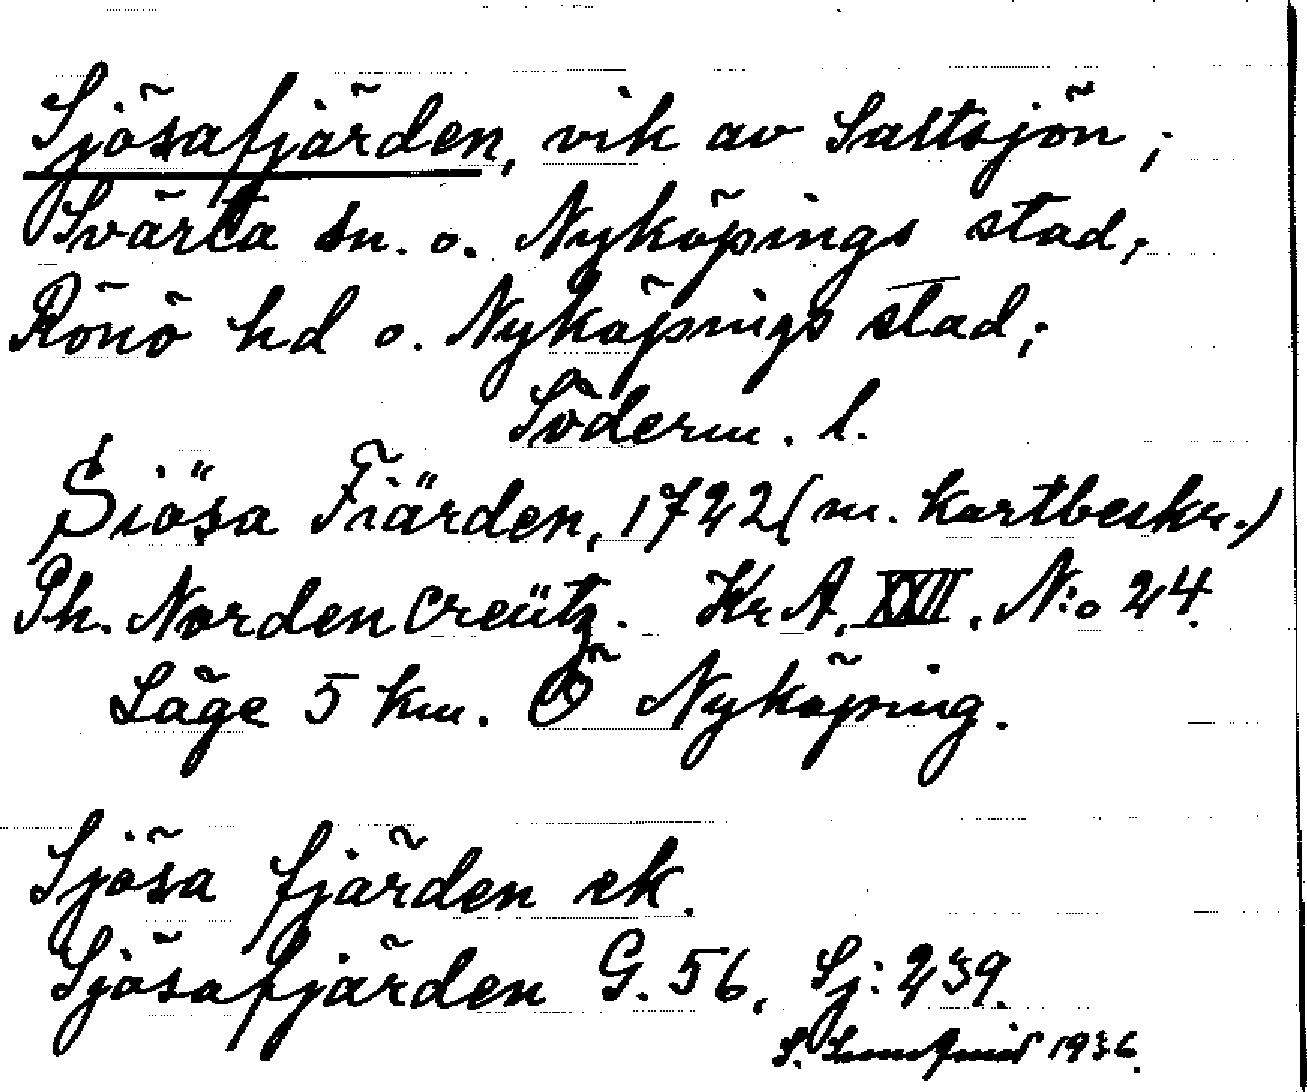 Sjösafjärden, vik av Saltsjön;
Svärta sn. o. Nyköpings stad;
Rönö hd o. Nyköpings stad;
Söderm. l.
Siösa Fiärden, 1722 (m. kartbeskr.)
Ph. Nordencreütz. Kr A. XXII. N:o 24.
Läge 5 km. Ö Nyköping.
Sjösa fjärden ek.
Sjösafjärden G. 56, Sj: 239.
S. 1936.